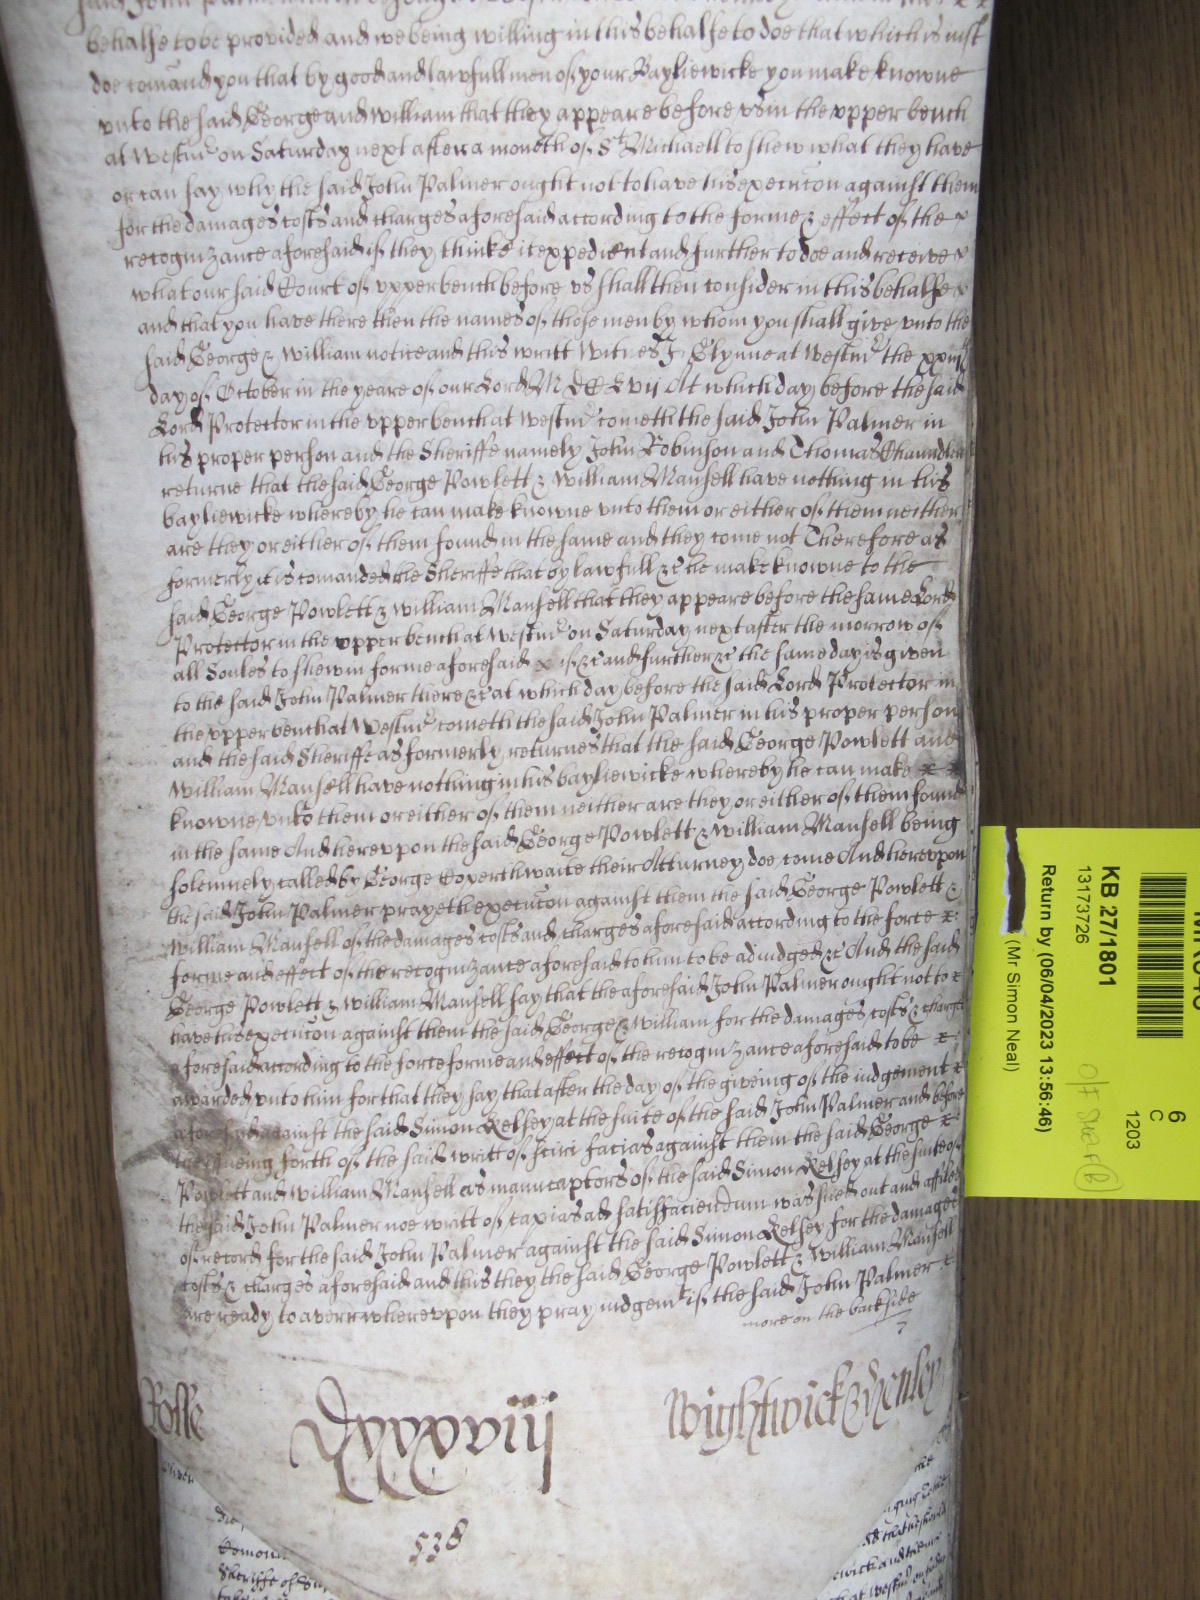 said John Palmer
behalfe to be provided and we being willing in this behalfe to doe that which is iust
doe comãnd you that by good and lawfull men of your Bayliewicke you make knowne
vnto the said George and William that they appeare before vs in the vpper bench
at Westmr on Saturday next after a moneth of St Michaell to shew what they have
or can say why the said John Palmer ought not to have his execucõn against them
for the damages costs and charges aforesaid according to the forme & effect of the
recognizance aforesaid if they thinke it expedient and further to doe and receive
what our said Court of vpper bench before vs shall then consider in this behalfe
and that you have there then the names of those men by whom you shall give vnto the
said George & William notice and this writt Witnes J: Glynne at Westmr the
day of October in the yeare of our Lord M DC Lvij At which day before the said
Lord Protector in the vpper bench at Westmr cometh the said John Palmer in
his proper person and the Sheriffe namely John Robinson and Thomas Chaundler
returne that the said George Powlett & William Mansell have nothing in his
bayliewicke whereby he can make knowne vnto them or either of them neither
are they or either of them found in the same and they come not Therefore as
formerly it is comanded the Sheriffe that by lawfull &c he make knowne to the
said George Powlett & William Mansell that they appeare before the same Lord
Protector in the vpper bench at Westmr on Saturday next after the morrow of
all Soules to shew in forme aforesaid if &c and further &c the same day is given
to the said John Palmer there &c at which day before the said Lord Protector in
the vpper bench at Westmr cometh the said John Palmer in his proper person
and the said Sheriffe as formerly returnes that the said George Powlett and
William Mansell have nothing in his bayliewicke whereby he can make
knowne vnto them or either of them neither are they or either of them found
in the same And herevpon the said George Powlett & William Mansell being
solemnely called by George Copperthwaite their Atturney doe come And herevpon
the said John Palmer prayeth execucõn against them the said George Powlett &
William Mansell of the damages costs and charges aforesaid according to the force
forme and effect of the recognizance aforesaid to him to be adiudged &c And the said
George Powlett & William Mansell say that the aforesaid John Palmer ought not to
have his execucõn against them the said George & William for the damages costs & charges
aforesaid according to the force forme and effect of the recognizance aforesaid to be
awarded vnto him for that they say that after the day of the giveing of the iudgement
aforesaid against the said Simon Kelsey at the suite of the said John Palmer and before
the sueing forth of the said writt of scire facias against them the said George
Powlett and William Mansell as manucaptors of the said Simon Kelsey at the suite of
the said John Palmer noe writt of capias ad satisfaciendum was sued out and affiled
of record for the said John Palmer against the said Simon Kelsey for the damages
costs & charges aforesaid and this they the said George Powlett & William Mansell
are ready to averr wherevpon they pray iudgemt if the said John Palmer
more on the backside
Rosse
Dxxxviij
Wightwick & Henley
538
KB 27/1801
13173726
Return by (06/04/2023 13:56:46)
(Mr Simon Neal)
6
C
1203